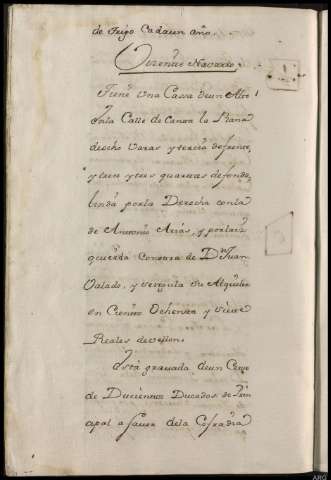 de trigo Cada un año.
Vizente Navarro.
Tiene una Cassa de un Alto
en la Calle de Canta la Rana
de ocho varas y tercia de frente,
y tres quartas de fondo,
linda por la Derecha con la
de Antonio Arias, y por la iz
quierda Con otra de Dn. Juan
Oalado, y se regula su Alquiler
en Ciento Ochenta y
Reales de vellon.
Está gravada de un Censo
de Duzientos Ducados de Prin
cipal a favor de la Cofradia
1
ARG